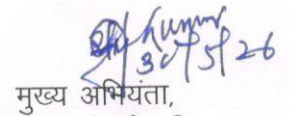 Kumar
30/5/26
मुख्य अभियंता,